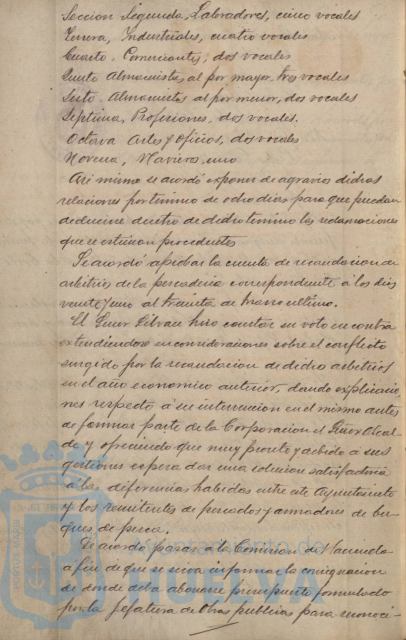 Seccion Segunda, Labradores, cinco vocales
Tercera, Industriales, cuatro vocales
Cuarta. Comerciantes, dos vocales
Quinta Almacenistas, al por mayor, tres vocales
Sesta. Almacenistas al por menor, dos vocales
Septima, Profesiones, dos vocales.
Octava Artes y Oficios, dos vocales
Novena, Navieros, uno
Asi mismo se acordó exponer de agravios dichas
relaciones por termino de ocho dias para que puedan
deducirse dentro de dicho termino las reclamaciones
que se estimen procedentes
Se acordó aprobar la cuenta de recaudacion de
arbitrios de la pescaderia correspondiente á los dias
veinte y uno al treinta de marzo ultimo.
El Señor hizo constar su voto en contra
extendiendose en consideraciones sobre el conflicto
surgido por la recaudacion de dicho arbitrios
en el año economico anterior, dando explicacio
nes respecto á su intervencion en el mismo antes
de formar parte de la Corporacion el Señor Alcal
de y ofreciendo que muy pronto y debido á sus
gestiones espera dar una solucion satisfactoria
á las diferencias habidas entre este Ayuntamiento
y los remitentes de pescados y armadores de bu
ques de pesca.
Se acordó pasar á la Comision de Hacienda
á fin de que se sirva informar la consignacion
de donde deba abonarse presupuesto formulado
por la jefatura de Obras publicas para reconoci
Ayuntamiento de
HUELVA